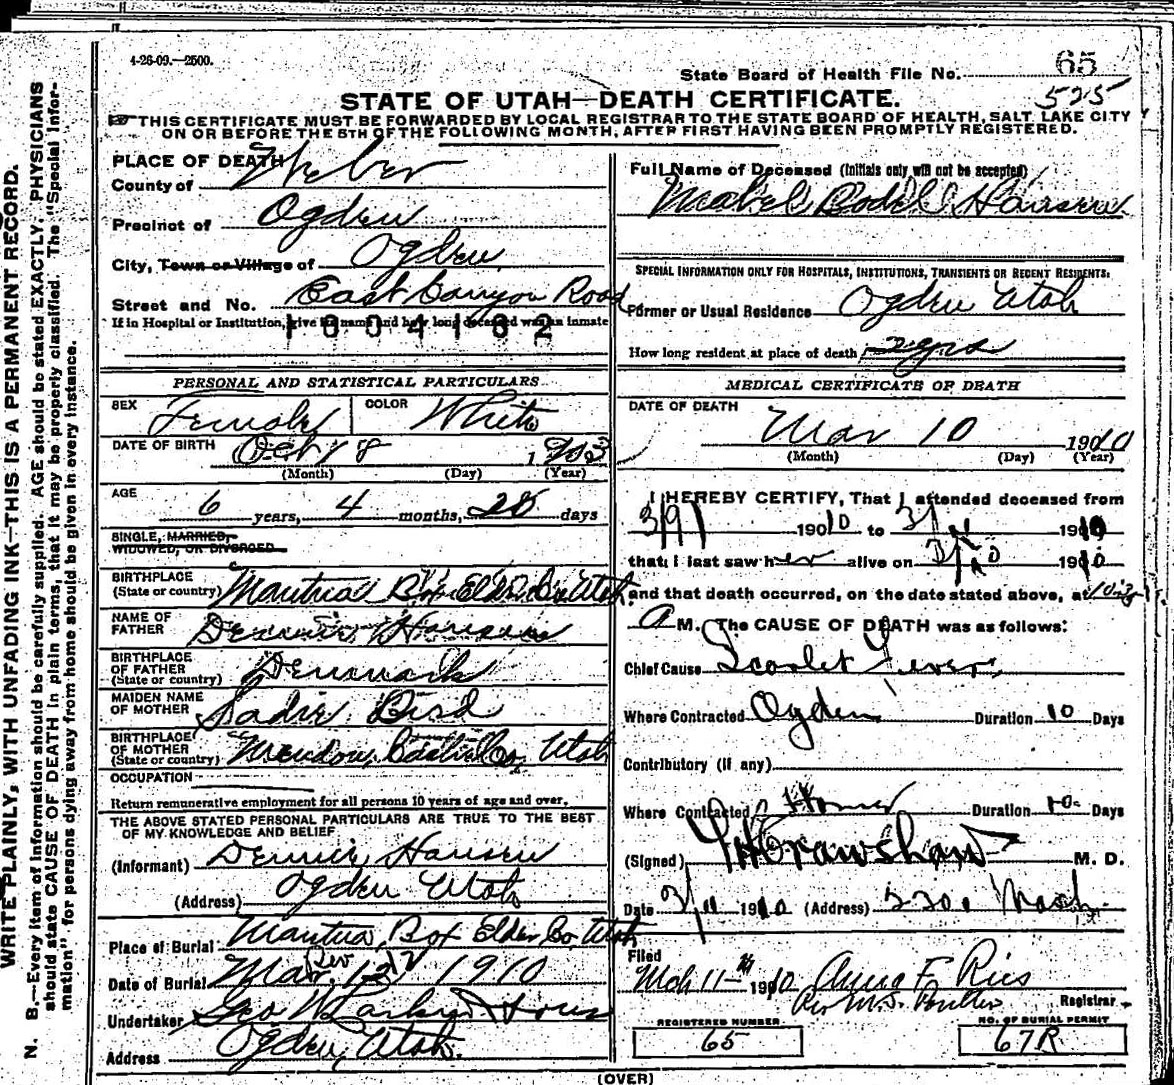 4-26-09.—2500.
State Board of Health File No. 65
525
STATE OF UTAH—DEATH CERTIFICATE.
THIS CERTIFICATE MUST BE FORWARDED BY LOCAL REGISTRAR TO THE STATE BOARD OF HEALTH, SALT LAKE CITY
ON OR BEFORE THE 5TH OF THE FOLLOWING MONTH, AFTER FIRST HAVING BEEN PROMPTLY REGISTERED.
WRITE PLAINLY, WITH UNFADING INK—THIS IS A PERMANENT RECORD.
N. B.—Every item of information should be carefully supplied. AGE should be stated EXACTLY. PHYSICIANS
should state CAUSE OF DEATH in plain terms, that it may be properly classified. The "Special Infor-
mation" for persons dying away from home should be given in every instance.
PLACE OF DEATH
County of Weber
Precinct of Ogden
City, Town or Village of Ogden
Street and No. East Canyon Road
If in Hospital or Institution, give its name and how long deceased was an inmate
1004162
PERSONAL AND STATISTICAL PARTICULARS
SEX Female COLOR White
DATE OF BIRTH Oct 18 1903
(Month) (Day) (Year)
AGE
6 years, 4 months, 28 days
SINGLE, MARRIED,
WIDOWED, OR DIVORCED
BIRTHPLACE
(State or country) Mantua Box Elder Co. Utah
NAME OF
FATHER Dennis Hansen
BIRTHPLACE
OF FATHER
(State or country) Denmark
MAIDEN NAME
OF MOTHER Sadie Bird
BIRTHPLACE
OF MOTHER
(State or country) Meadow, Cache Co, Utah
OCCUPATION
Return remunerative employment for all persons 10 years of age and over.
THE ABOVE STATED PERSONAL PARTICULARS ARE TRUE TO THE BEST
OF MY KNOWLEDGE AND BELIEF
(Informant) Dennis Hansen
(Address) Ogden Utah
Place of Burial Mantua, Box Elder Co, Utah
Date of Burial Mar. 12 1910
Undertaker Geo W Larkin & Sons
Address Ogden, Utah.
Full Name of Deceased (Initials only will not be accepted)
Mabel Bodil Hansen
SPECIAL INFORMATION ONLY FOR HOSPITALS, INSTITUTIONS, TRANSIENTS OR RECENT RESIDENTS.
Former or Usual Residence Ogden Utah
How long resident at place of death 2 yrs
MEDICAL CERTIFICATE OF DEATH
DATE OF DEATH
Mar 10 1910
(Month) (Day) (Year)
I HEREBY CERTIFY, That I attended deceased from
3/9 1910 to 3/ 1910
that I last saw her alive on 3/10 1910
and that death occurred, on the date stated above, at
A M. The CAUSE OF DEATH was as follows:
Chief Cause Scarlet Fever
Where Contracted Ogden Duration 10 Days
Contributory (if any)
Where Contracted Home Duration 10 Days
(Signed) Crawshaw M. D.
Date 3/11 1910 (Address) 2301 Wash.
Filed
Mch 11th 1910 Anna F. Ries
Per M.S. Poulter Registrar
REGISTERED NUMBER
65
NO. OF BURIAL PERMIT
67R
(OVER)